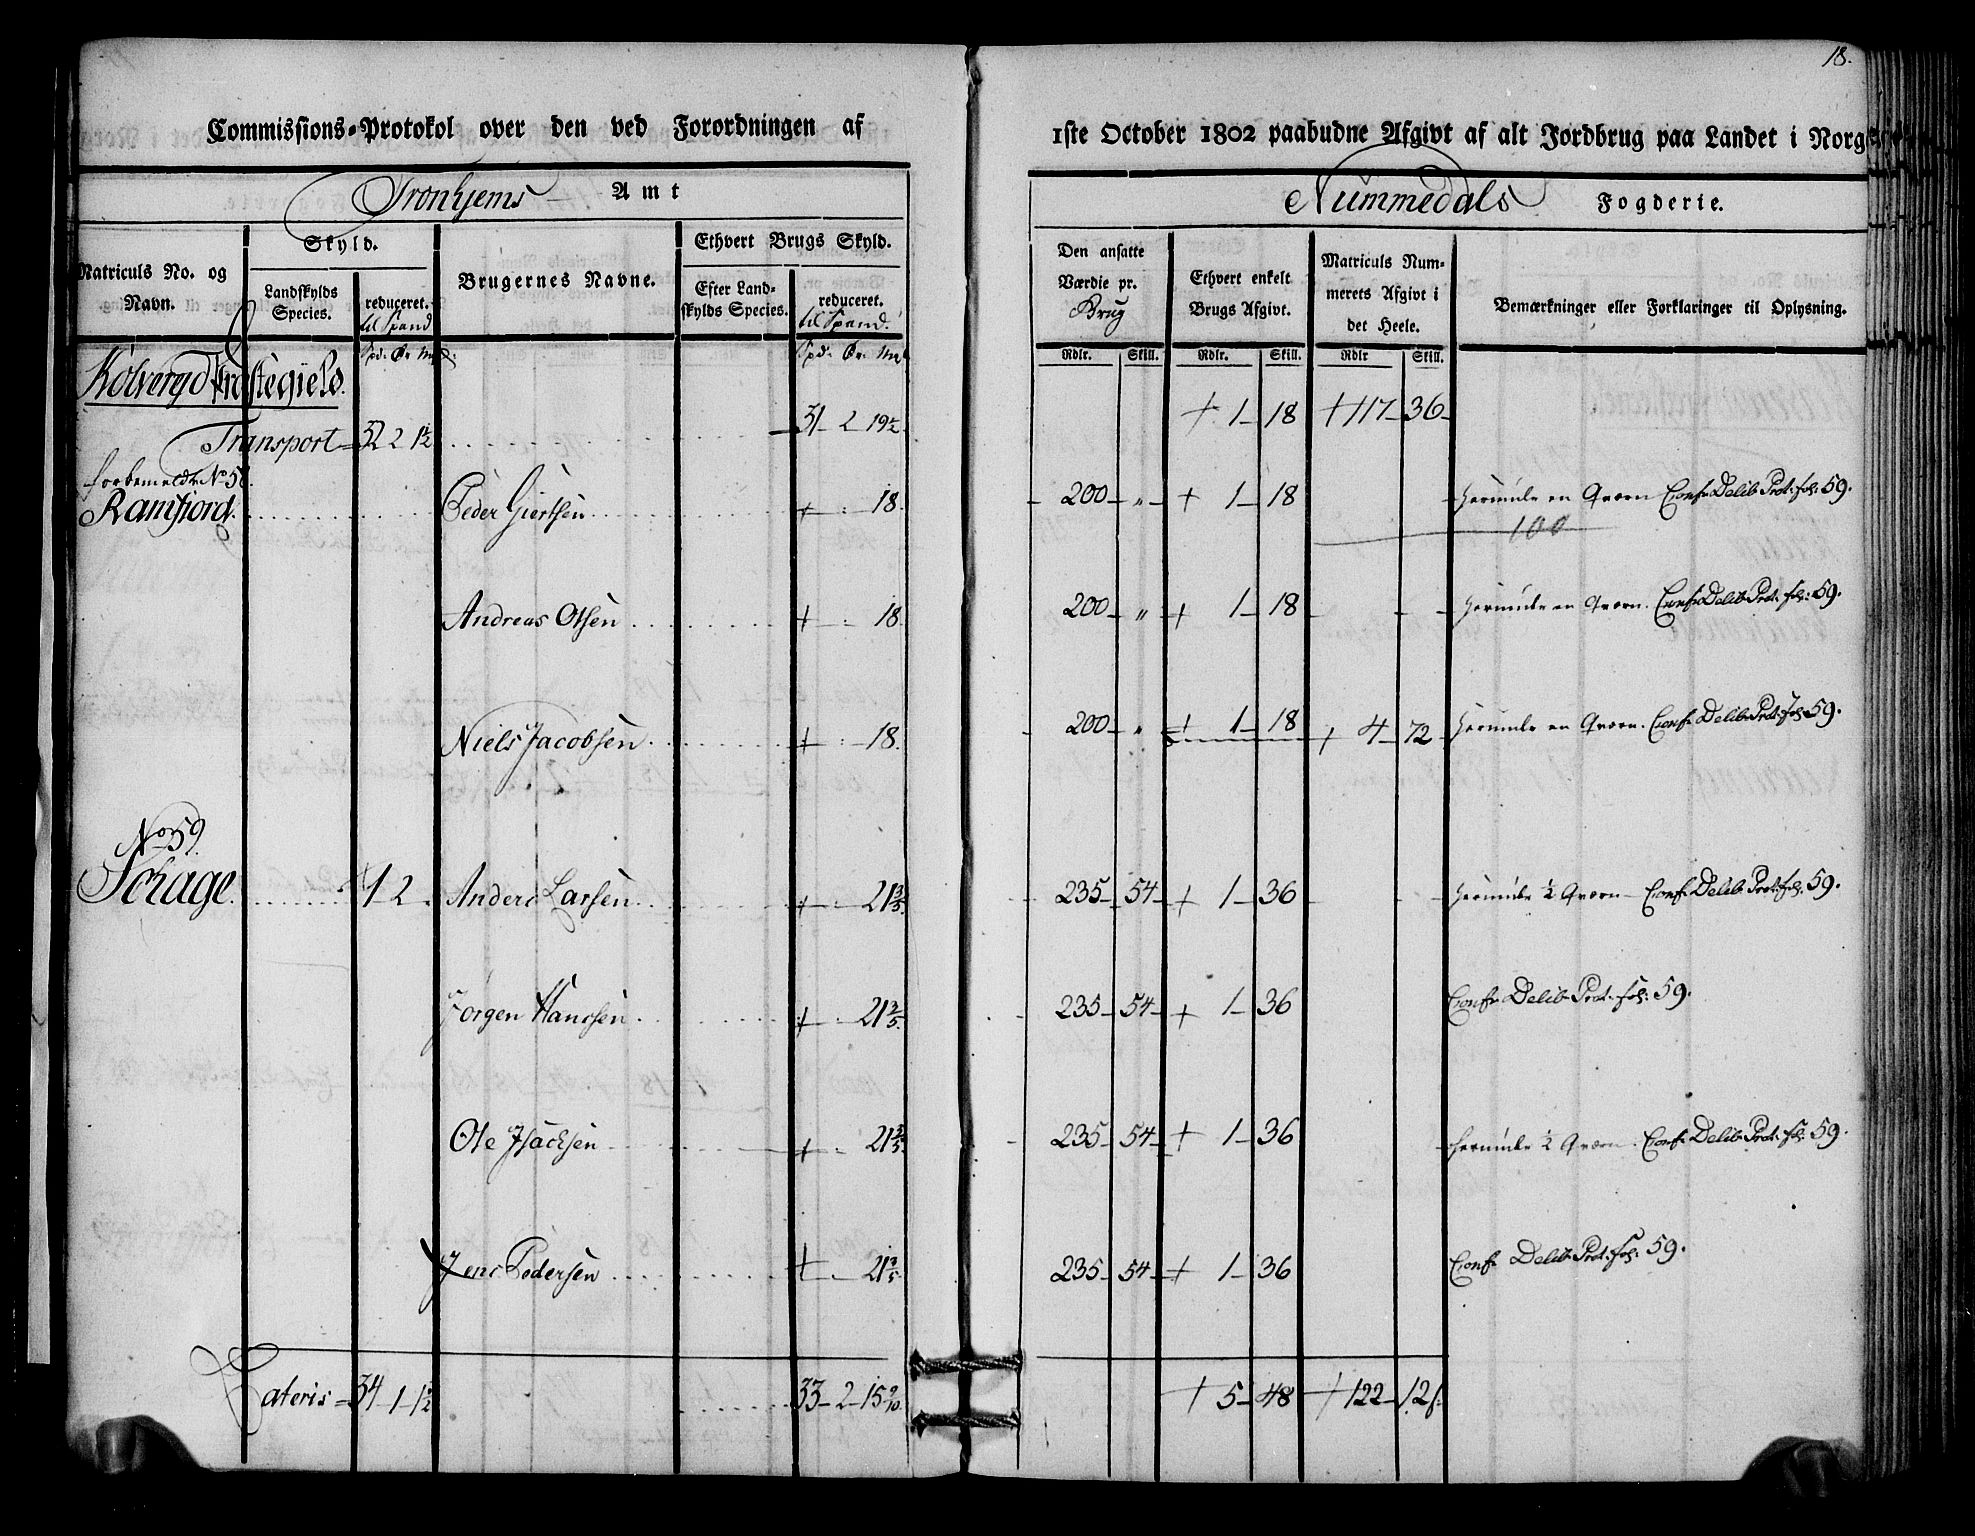 18.
Commissions-Protokol over den ved Forordningen af 1ste October 1802 paabudne Afgivt af alt Jordbrug paa Landet i Norge
Tronhjems Amt
Nummedals Fogderie.
Matriculs No. og Navn.
Skyld.
Landskylds Species.
reduceret. til Spand
Brugernes Navne.
Ethvert Brugs Skyld.
Efter Landskylds Species.
reduceret. til Spand.
Den ansatte Værdie pr. Brug
Ethvert enkelt Brugs Afgivt.
Matriculs Nummerets Afgivt i det Heele.
Bemærkninger eller Forklaringer til Oplysning.
Spd. Ør. Mrk. Spd. Ør. Mrk. Rdlr. Skill. Rdlr. Skill. Rdlr Skill.
Kolvereyd Præstegield.
Transport 32 2 1½ 31 2 19½ + 1 18 + 117 36
forbemeldte No 58.
Ramfiord. Peder Giertsen + 18. 200 " + 1 18 herunde en Qværn Conf. Delib. Prot. fol: 59.
100
Andreas Olsen + 18. 200 " + 1 18 herunde en Qværn. Conf. Delib. Prot. fol: 59.
Niels Jacobsen + 18. 200 " + 1 18 + 4 72 herunde en Qværn. Conf. Delib. Prot. fol: 59.
No 59.
1 2 Anders Larsen + 21 3/5. 235 54 + 1 36 herunde ½ Qværn Conf. Delib. Prot. fol: 59.
Jørgen Hanssen + 21 3/5. 235 54 + 1 36 Conf. Delib. Prot. fol: 59.
Ole Isachsen + 21 3/5. 235 54 + 1 36 herunde ½ Qværn. Conf. Delib. Prot. fol: 59.
Jens Pedersen + 21 3/5 235 54 + 1 36 Conf. Delib. Prot. fol: 59.
Lateris 34 1 1½ 33 2 15 9/10. + 5 48 + 122 12